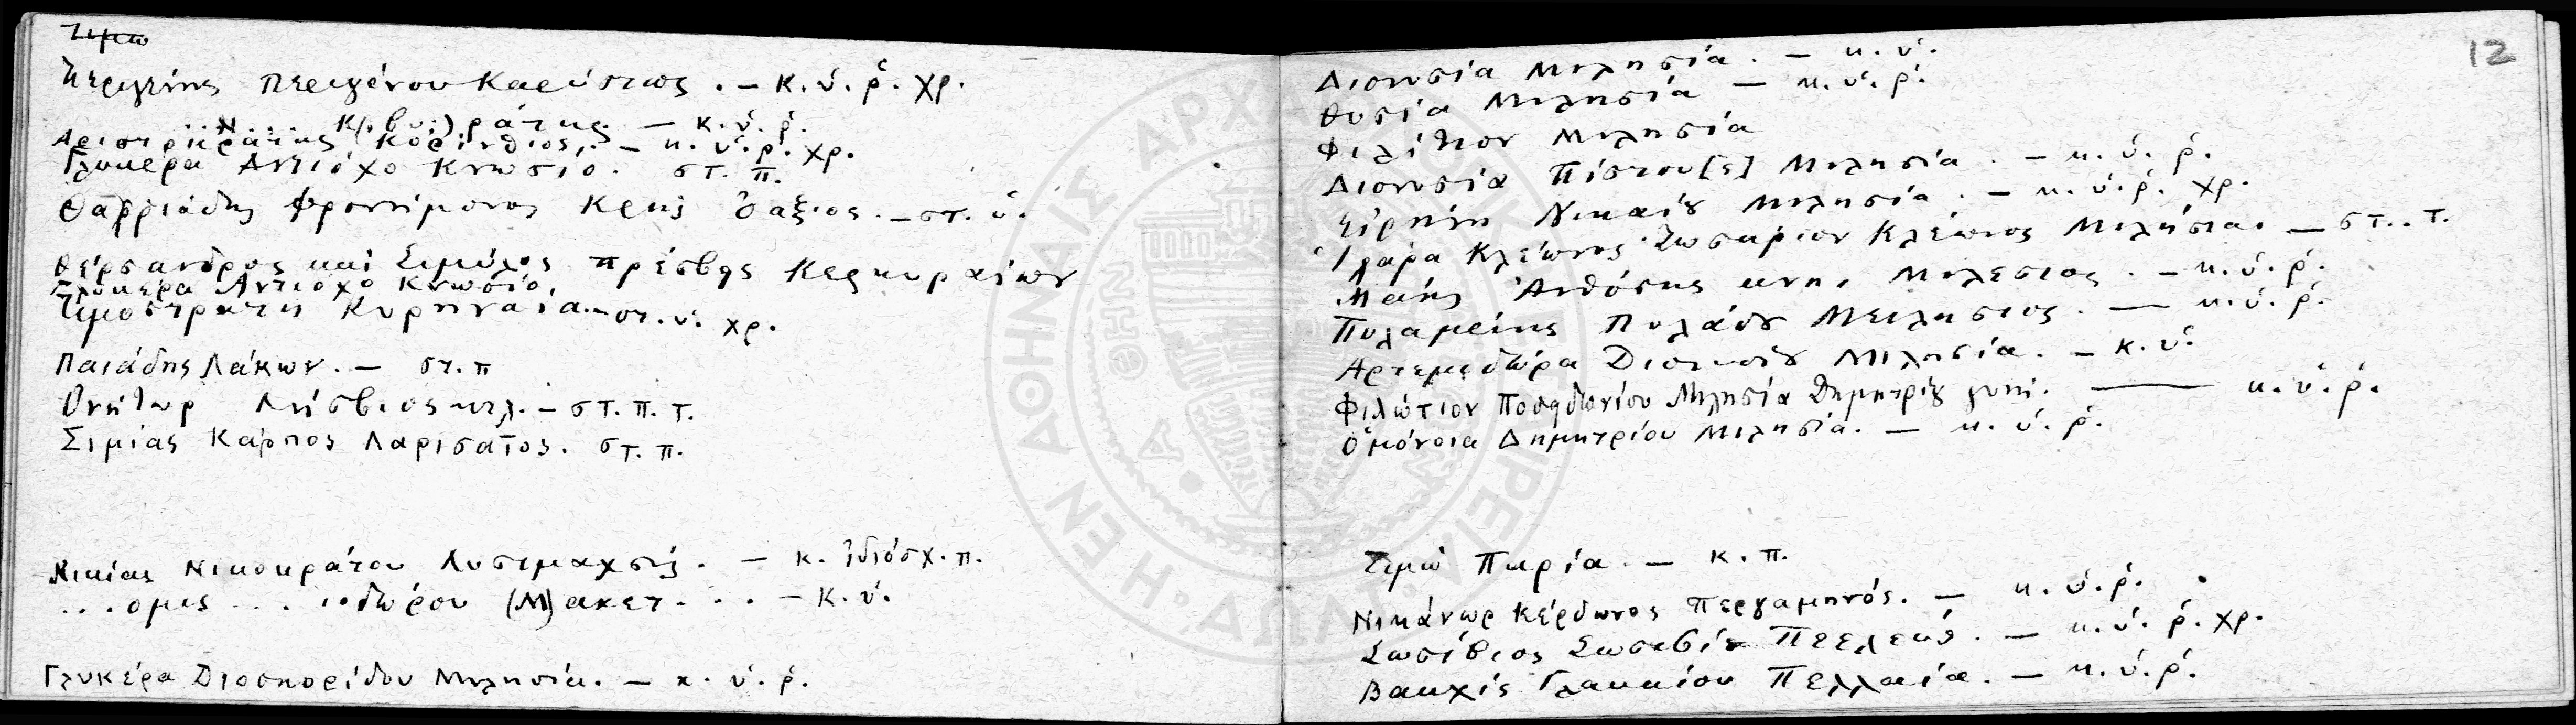 Τιμω
Περιγένης Περιγένου Καρύστιος . – κ. ύ. ρ. χρ.
Κ(.βυ:)ράτης – κ. ύ. ρ.
Αριστοκράτης Κορίνθιος. – κ. ύ. ρ. χρ.
Γλυκερα Αντιόχο Κνωσίο. στ. π.
Θαρριάδης Φρονίμονος Κρης Οάξιος. – στ. ύ.
Θέρσανδρος και Σιμύλος πρέσβης Κερκυραίων
Γλυκερα Αντιόχο Κνωσίο.
Τιμοστράτη Κυρηναία. – στ. ύ. χρ.
Παιάδης Λάκων. – στ. π
Ονήτωρ Λέσβιος κτλ. – στ. π. τ.
Σιμίας Κάρπος Λαρισαῖος. στ. π.
Νικίας Νικοκράτου Λυσιμαχεύς. – κ. ἰδιόσχ. π.
...ομις ... ιοδώρου (Μ)ακετ... – κ. ύ.
Γλυκέρα Διοσκορίδου Μιλησία. – κ. ύ. ρ.
12
Διονυσία Μιλησία. – κ. ύ.
Θυσία Μιλησία – κ. ύ. ρ.
Φιλίτιον Μιλησία
Διονυσία Πίστου[ς] Μιλησία. – κ. ύ. ρ.
Εἰρήνη Νικαίου Μιλησία. – κ. ύ. ρ. χρ.
Ἱλαρα Κλέωνος Ζωσάριον Κλέωνος Μιλήσια. – στ.. τ.
Μαης Μιλεσιος. – κ. ύ. ρ.
Πυλάδου Μειλησιος. — κ. ύ. ρ.
Αρτεμεδώρα Διονυσίου Μιλησία. – κ. ύ.
Φιλώτιον Ποσιδωνίου Μιλησία Δημητρίου γυνή. —— κ. ύ. ρ.
Ομόνοια Δημητρίου Μιλησία. – κ. ύ. ρ.
Τιμώ Παρία. – κ. π.
Νικάνωρ Κέρδωνος Περγαμηνός. – κ. ύ. ρ.
Σωσίβιος Σωσιβίου – κ. ύ. ρ. χρ.
Βακχίς Γλαυκίου Πελλαία. – κ. ύ. ρ.
Η ΕΝ ΑΘΗΝΑΙΣ ΑΡΧΑΙΟΛΟΓΙΚΗ ΕΤΑΙΡΕΙΑ